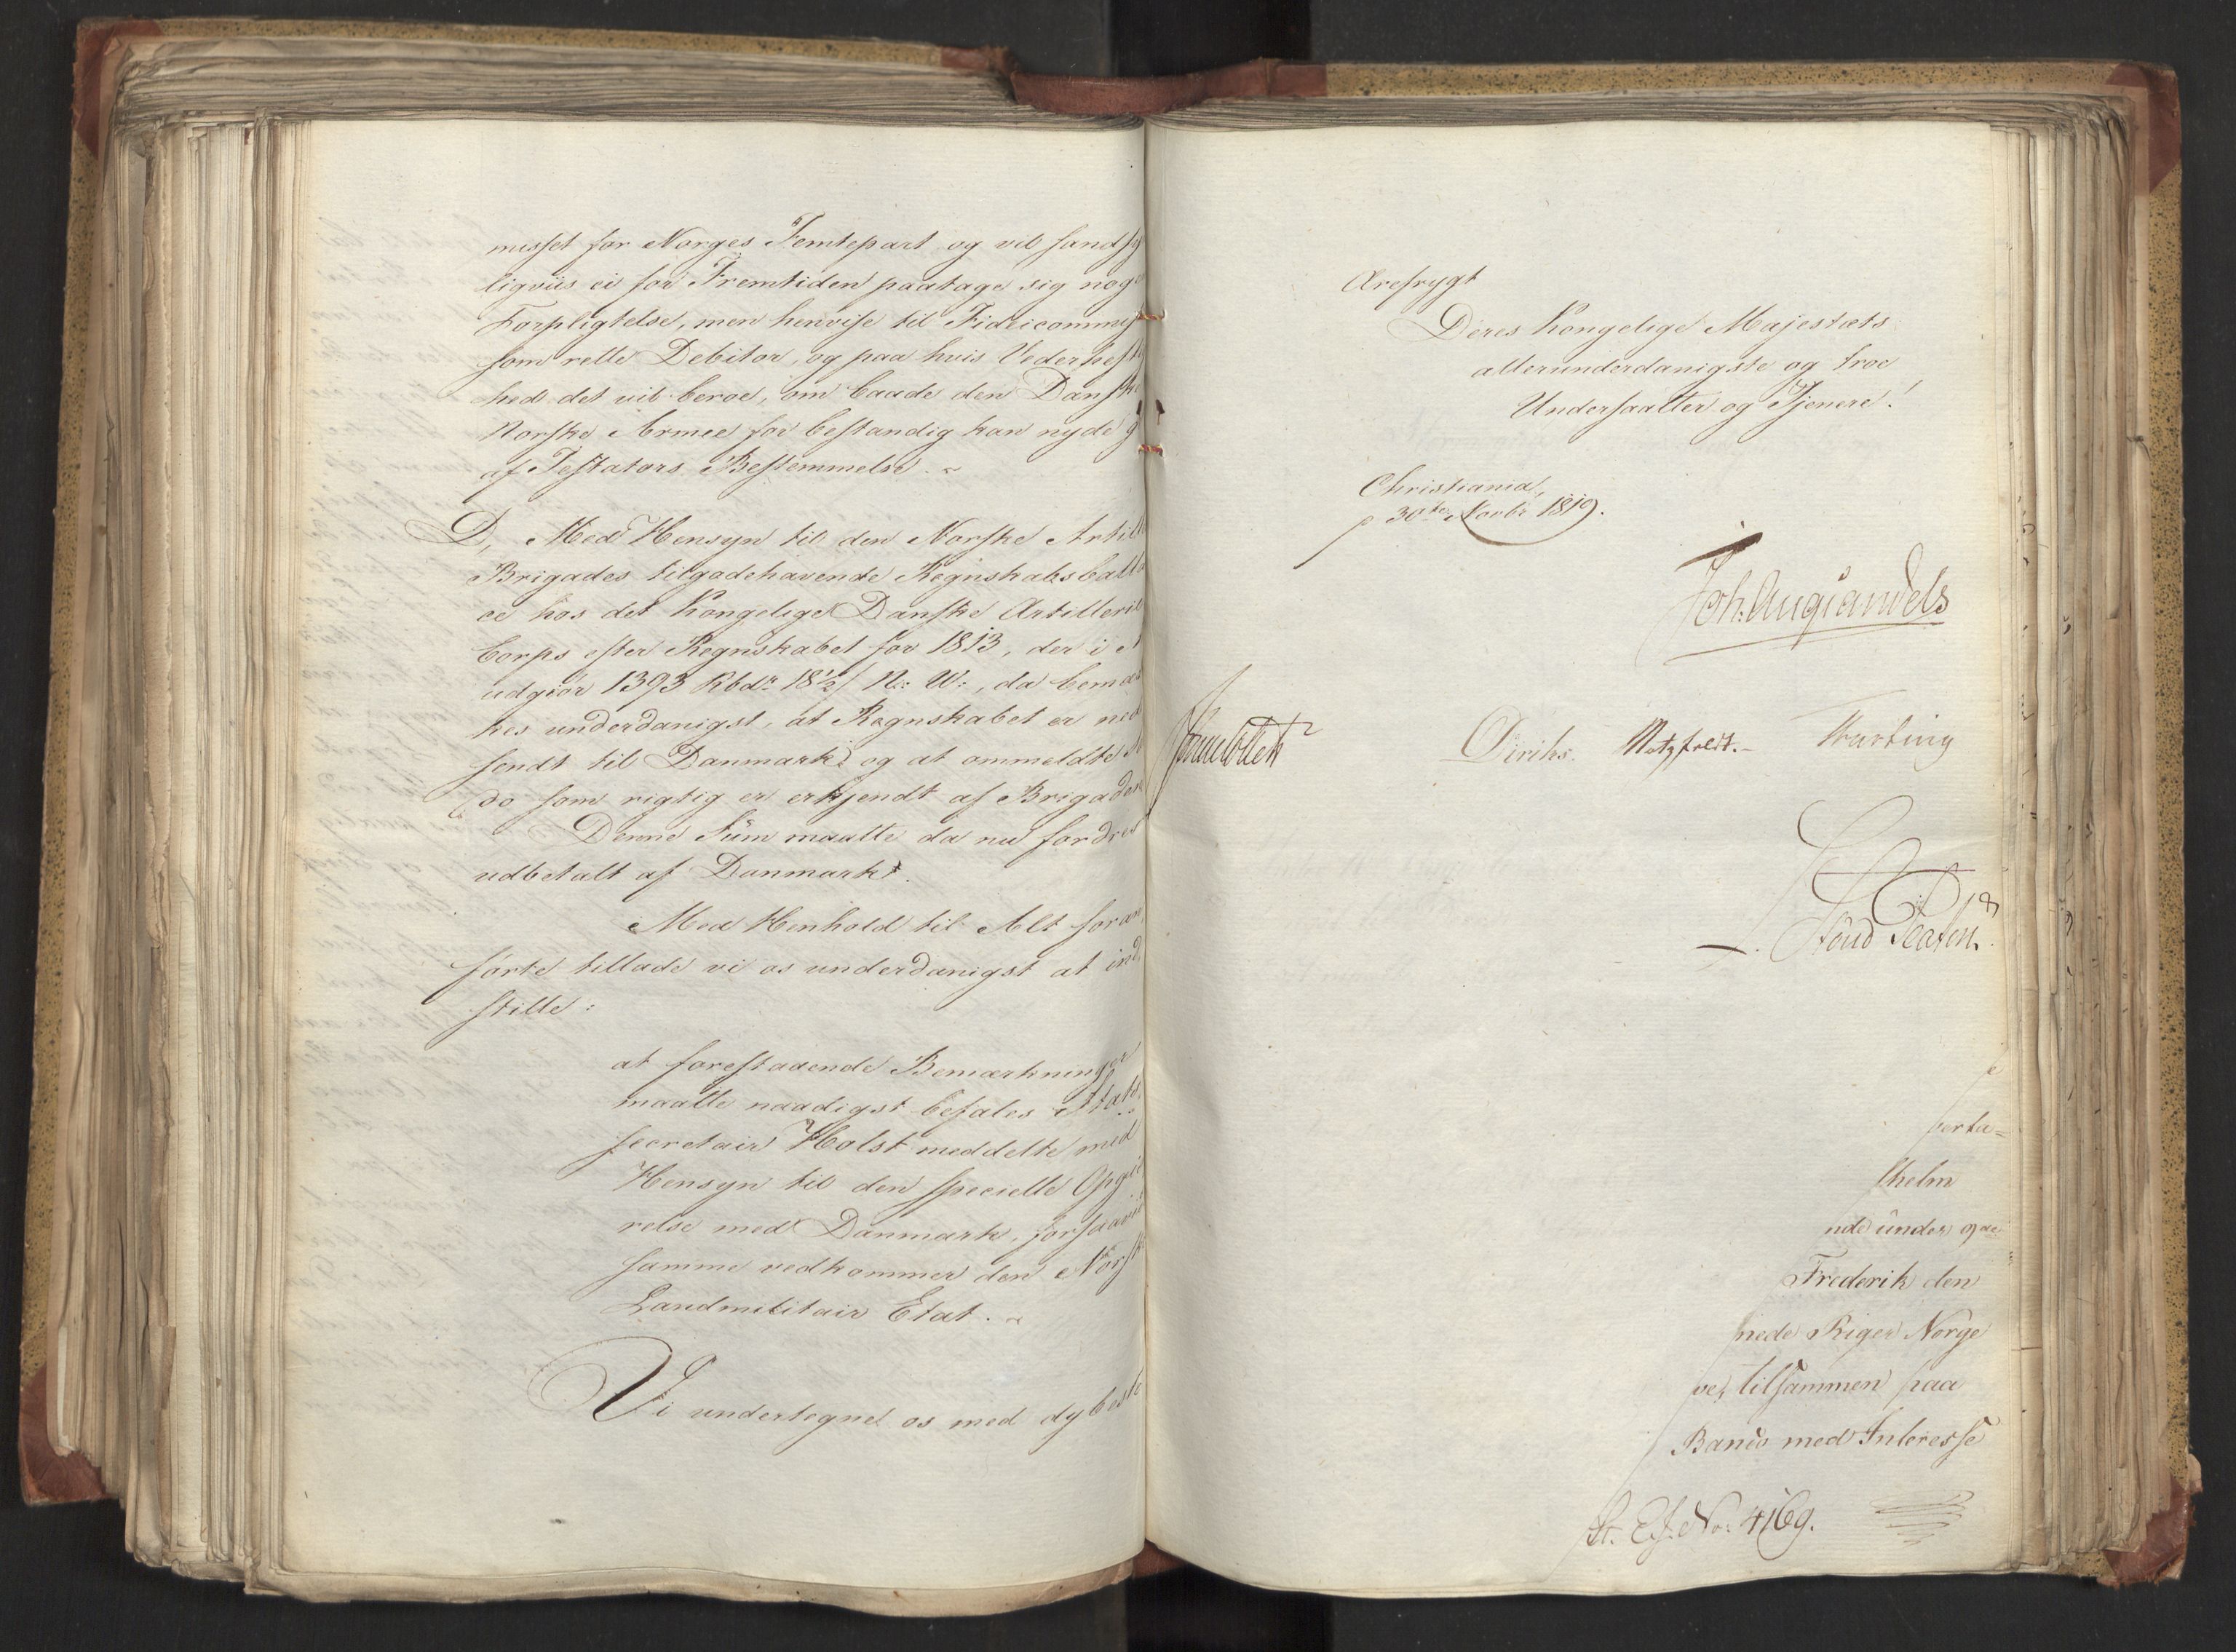 misset for Norges Femtepart og vil sandsy
ligviis ei for Fremtiden paatage sig noge
Forpligtelse, men henvise til Fideicommis
som rette Debitor, og paa hvis Vederhefti
hed det vil beroe, om baade den Danske
Norske Armee for bestandig kan nyde g
af Testators Bestemmelse. ~
D, Med Hensyn til den Norske Artille
Brigades tilgodehavende Regnskabs ball
ce hos det Kongelige Danske Artillerie
Corps efter Regnskabet for 1813, der i A
udgiør 1393 Rbdr 18½ / N: V:, da bemær
kes underdanigst, at Regnskabet er ned
sendt til Danmark og at ommeldte
do som rigtig er erkjendt af Brigaden
Denne Sum maatte da nu fordres
udbetalt af Danmark.
Med Henhold til Alt foran
førte tillade vi os underdanigst at ind
stille:
at forestaaende Bemærkninger
maatte naadigst befales Stats
secretair Holst meddelte med
Hensyn til den specielle Opgiø
relse med Danmark, forsaavit
samme vedkommer den Norsk
Landmilitair Etat. ~
Vi undertegnet os med dybeste
Ærefrygt
Deres Kongelige Majestæts
allerunderdanigste og troe
Undersaatter og Tjenere!
Christiania,
p 30te Novbr 1819.
Joh. Aug: Sandels
Sommerfeldt
Diriks. Motzfeldt. Krefting
verta=
lhelm
nde under 9de
Frederik den
nede Riger Norge
ve, tilsammen paa
Banco med Interesse
St. Ex. No: 4169.